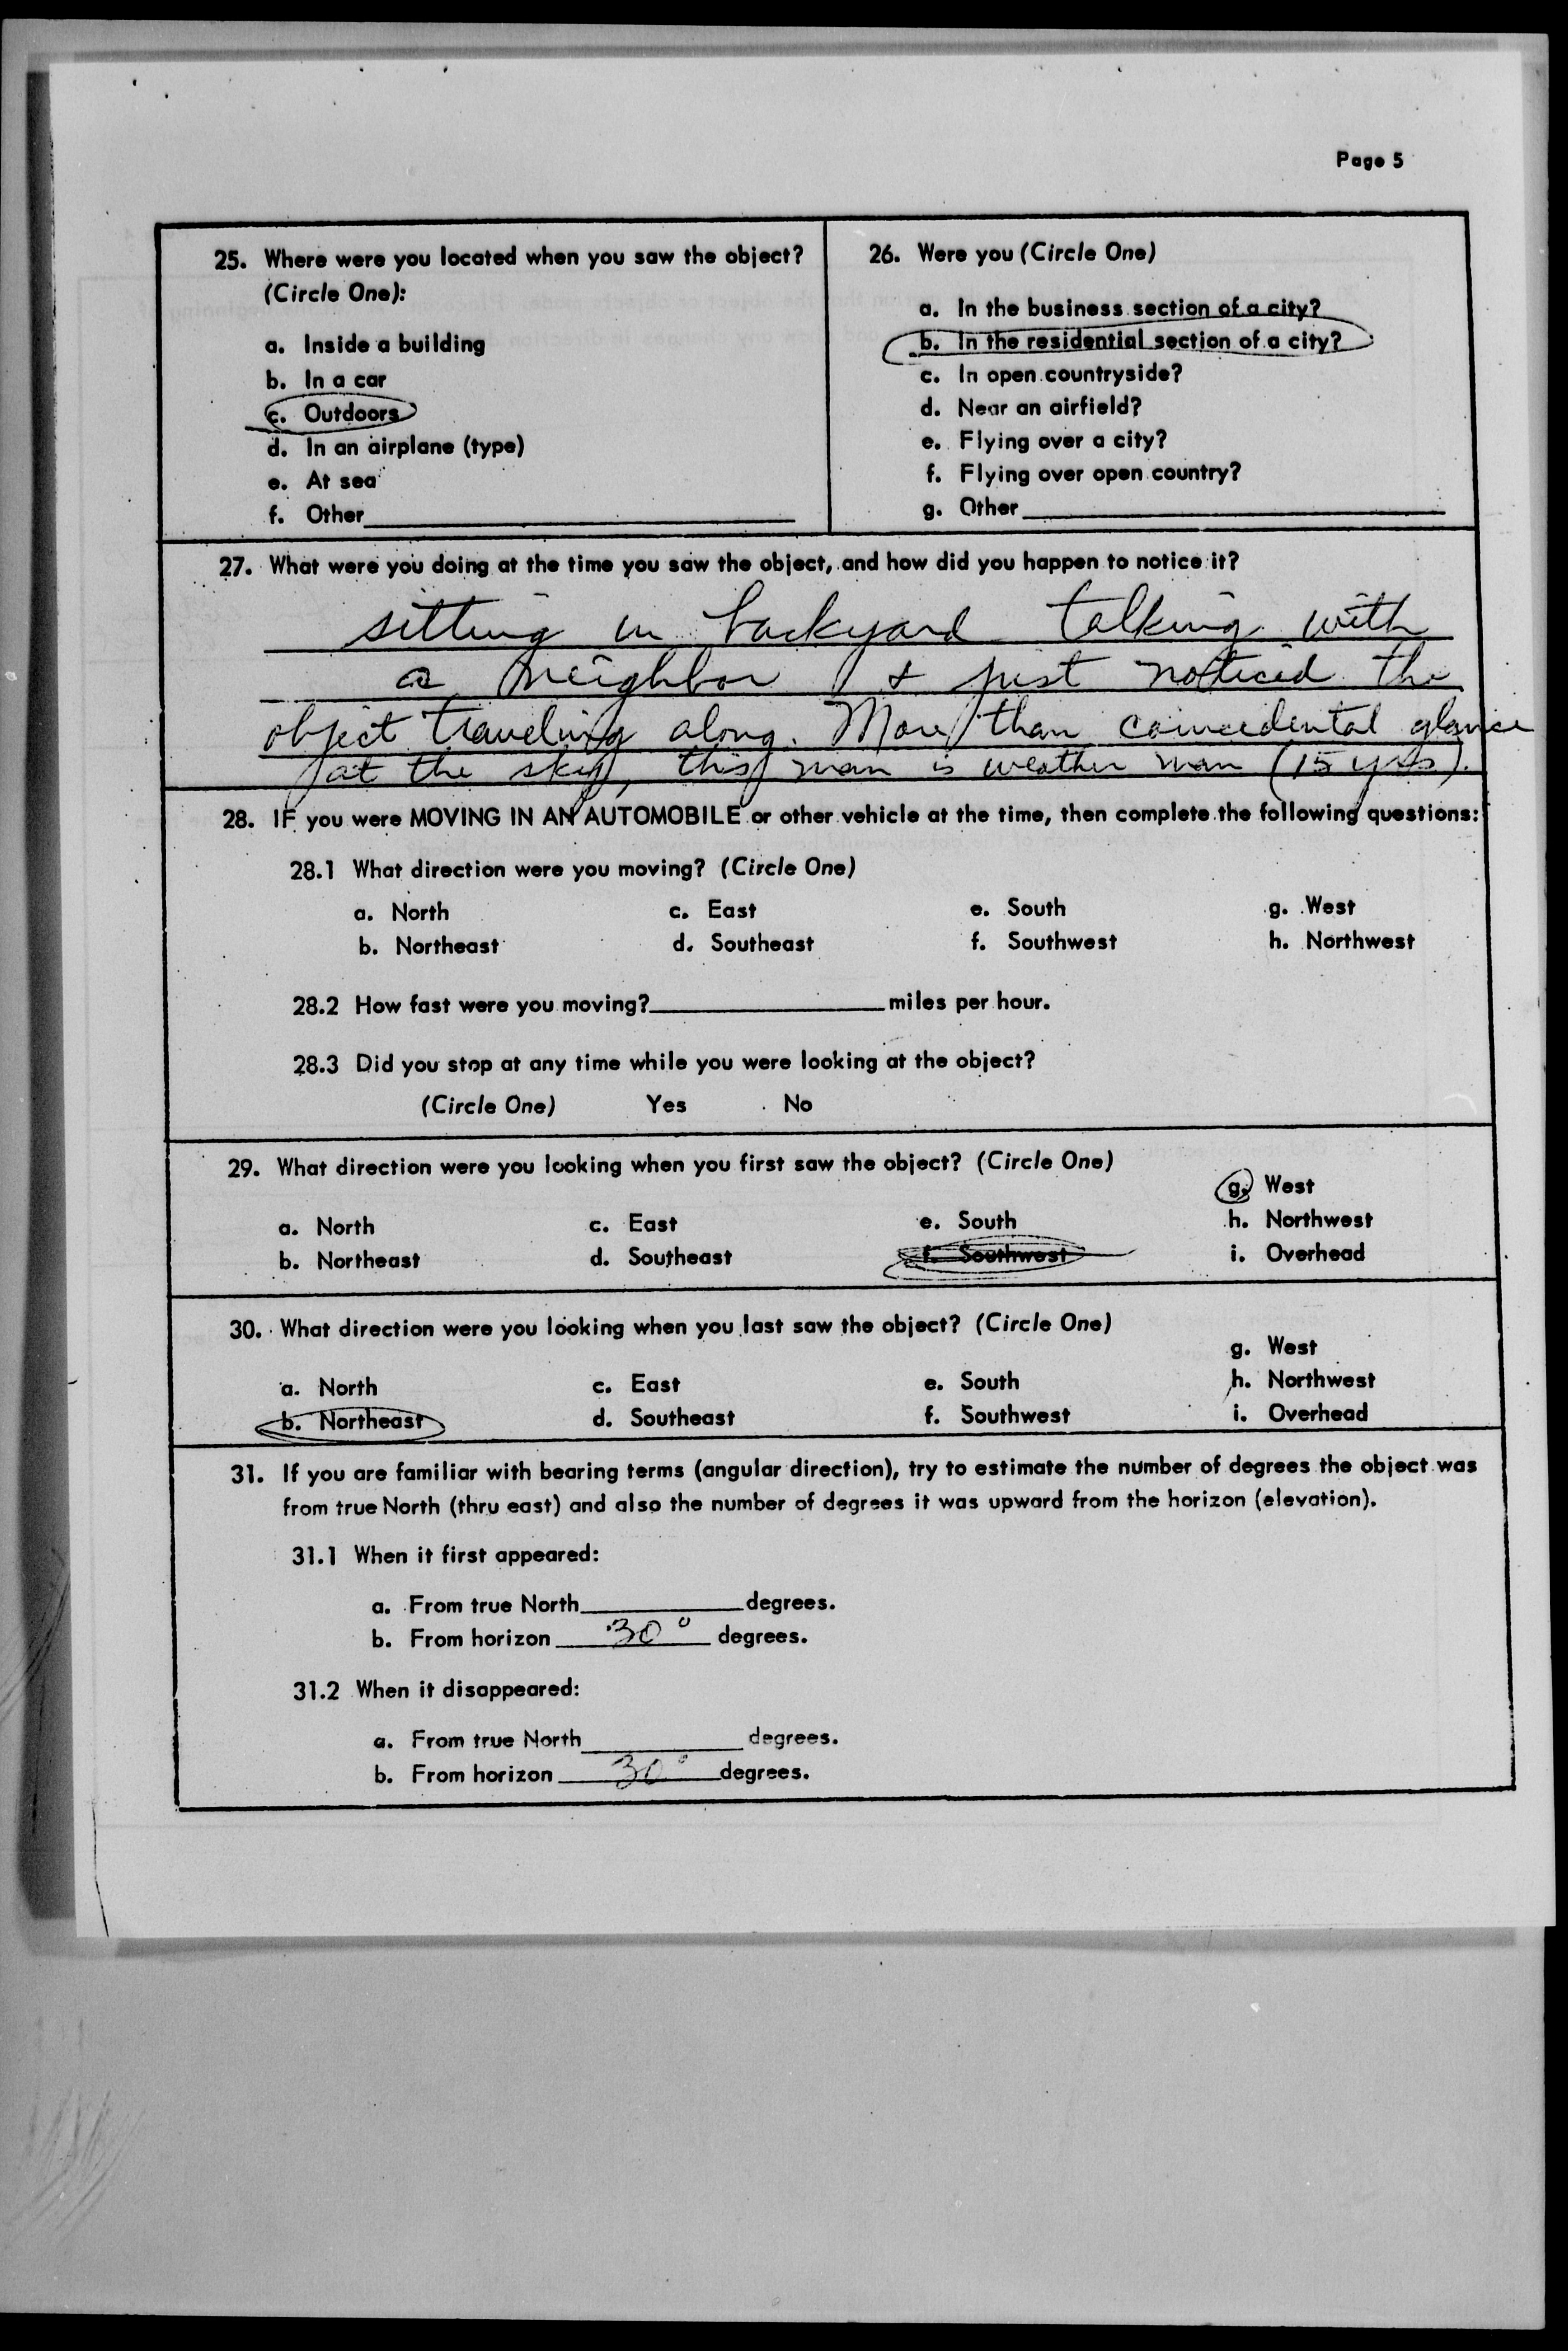 Page 5
25. Where were you located when you saw the object?
(Circle One):
a. Inside a building
b. In a car
c. Outdoors
d. In an airplane (type)
e. At sea
f. Other
26. Were you (Circle One)
a. In the business section of a city?
b. In the residential section of a city?
c. In open countryside?
d. Near an airfield?
e. Flying over a city?
f. Flying over open country?
g. Other
27. What were you doing at the time you saw the object, and how did you happen to notice it?
sitting in backyard talking with
a neighbor & just noticed the
object traveling along. More than coincedental glance
at the sky, this man is weather man (15 yrs).
28. IF you were MOVING IN AN AUTOMOBILE or other vehicle at the time, then complete the following questions:
28.1 What direction were you moving? (Circle One)
a. North c. East e. South g. West
b. Northeast d. Southeast f. Southwest h. Northwest
28.2 How fast were you moving? miles per hour.
28.3 Did you stop at any time while you were looking at the object?
(Circle One) Yes No
29. What direction were you looking when you first saw the object? (Circle One)
g. West
a. North c. East e. South h. Northwest
b. Northeast d. Southeast f. Southwest i. Overhead
30. What direction were you looking when you last saw the object? (Circle One)
g. West
a. North c. East e. South h. Northwest
b. Northeast d. Southeast f. Southwest i. Overhead
31. If you are familiar with bearing terms (angular direction), try to estimate the number of degrees the object was
from true North (thru east) and also the number of degrees it was upward from the horizon (elevation).
31.1 When it first appeared:
a. From true North degrees.
b. From horizon 30° degrees.
31.2 When it disappeared:
a. From true North degrees.
b. From horizon 30° degrees.